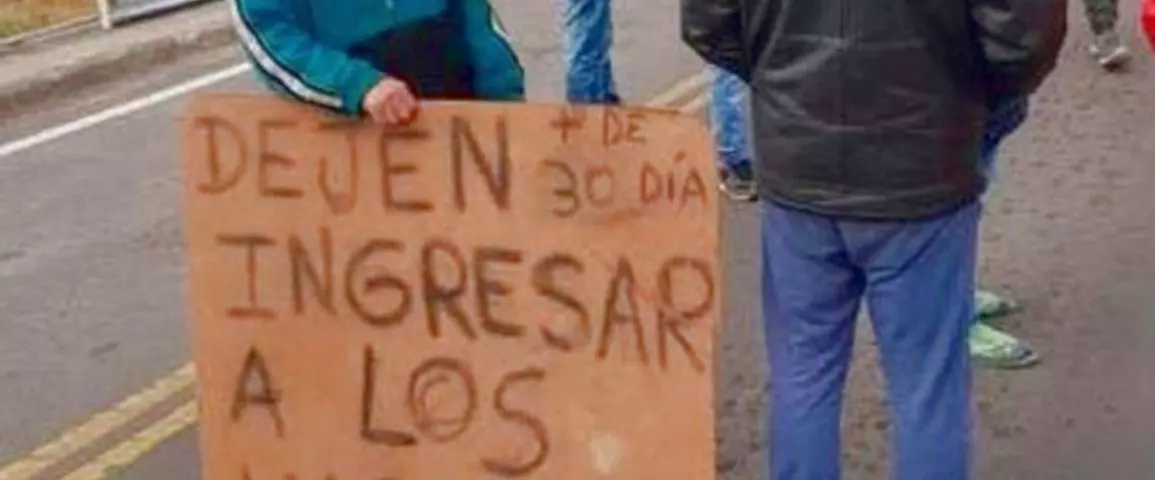 DEJEN + DE
30 DÍA
INGRESAR
A LOS